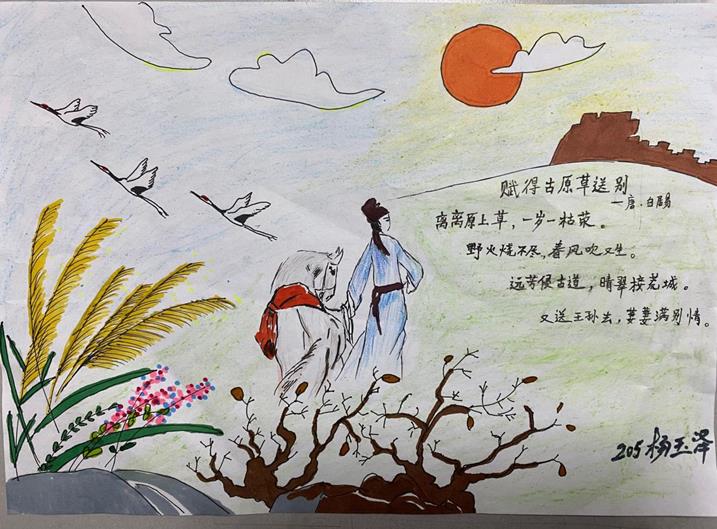 赋得古原草送别
—唐·白居易
离离原上草，一岁一枯荣。
野火烧不尽，春风吹又生。
远芳侵古道，晴翠接荒城。
又送王孙去，萋萋满别情。
205杨玉泽